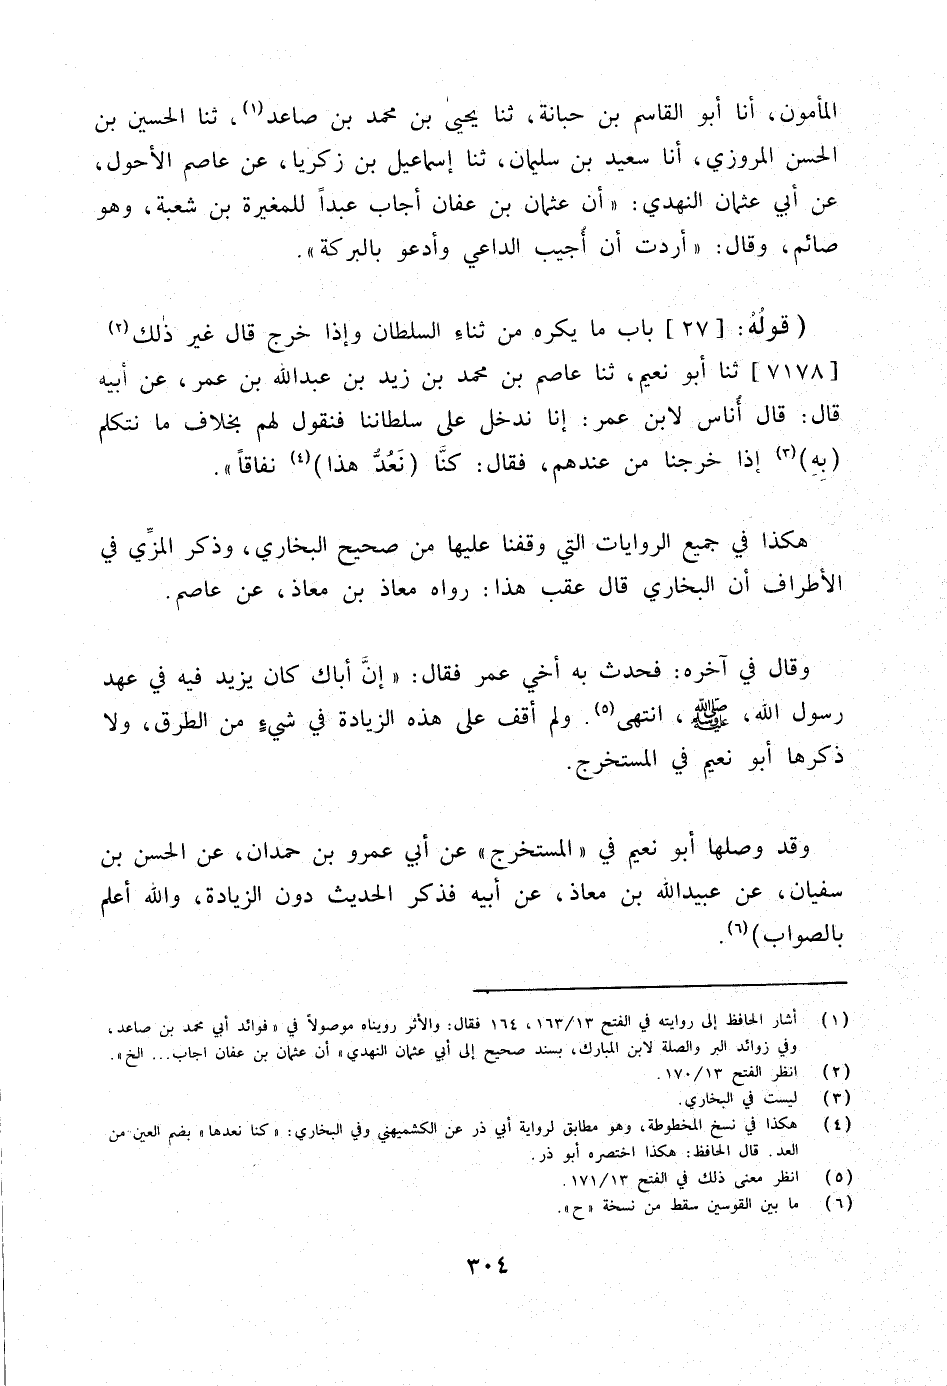 المأمون، أنا أبو القاسم بن حبانة، ثنا يحيىٰ بن محمد بن صاعد(١)، ثنا الحسين بن
الحسن المروزي، أنا سعيد بن سليمان، ثنا إسماعيل بن زكريا، عن عاصم الأحول،
عن أبي عثمان النهدي: «أن عثمان بن عفان أجاب عبداً للمغيرة بن شعبة، وهو
صائم، وقال: «أردت أن أُجيب الداعي وأدعو بالبركة».
(قولُهُ: [٢٧] باب ما يكره من ثناء السلطان وإذا خرج قال غير ذٰلك(٢)
[٧١٧٨] ثنا أبو نعيم، ثنا عاصم بن محمد بن زيد بن عبدالله بن عمر، عن أبيه
قال: قال أُناس لابن عمر: إنا ندخل على سلطاننا فنقول لهم بخلاف ما نتكلم
(بِهِ)(٣) إذا خرجنا من عندهم، فقال: كنَّا (نَعُدُّ هذا)(٤) نفاقاً».
هكذا في جميع الروايات التي وقفنا عليها من صحيح البخاري، وذكر المزِّي في
الأطراف أن البخاري قال عقب هذا: رواه معاذ بن معاذ، عن عاصم.
وقال في آخره: فحدث به أخي عمر فقال: «إنَّ أباك كان يزيد فيه في عهد
رسول الله، ﷺ، انتهى(٥). ولم أقف على هذه الزيادة في شيءٍ من الطرق، ولا
ذكرها أبو نعيم في المستخرج.
وقد وصلها أبو نعيم في «المستخرج» عن أبي عمرو بن حمدان، عن الحسن بن
سفيان، عن عبيدالله بن معاذ، عن أبيه فذكر الحديث دون الزيادة، والله أعلم
بالصواب)(٦).
(١) أشار الحافظ إلى روايته في الفتح ١٦٣/١٣، ١٦٤ فقال: والأثر رويناه موصولاً في «فوائد أبي محمد بن صاعد،
وفي زوائد البر والصلة لابن المبارك، بسند صحيح إلى أبي عثمان النهدي» أن عثمان بن عفان اجاب... الخ».
(٢) انظر الفتح ١٧٠/١٣.
(٣) ليست في البخاري.
(٤) هكذا في نسخ المخطوطة، وهو مطابق لرواية أبي ذر عن الكشميهني وفي البخاري: «كنا نعدها» بضم العين من
العد. قال الحافظ: هكذا اختصره أبو ذر.
(٥) انظر معنى ذلك في الفتح ١٧١/١٣.
(٦) ما بين القوسين سقط من نسخة «ح».
٣٠٤